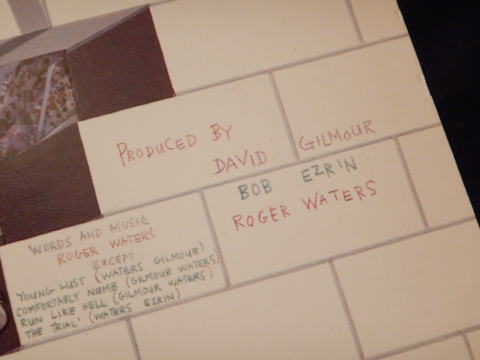 PRODUCED BY
DAVID GILMOUR
BOB EZRIN
ROGER WATERS
WORDS AND MUSIC
ROGER WATERS
EXCEPT
YOUNG LUST (WATERS GILMOUR)
COMFORTABLY NUMB (GILMOUR WATERS)
RUN LIKE HELL (GILMOUR WATERS)
THE TRIAL' (WATERS EZRIN)